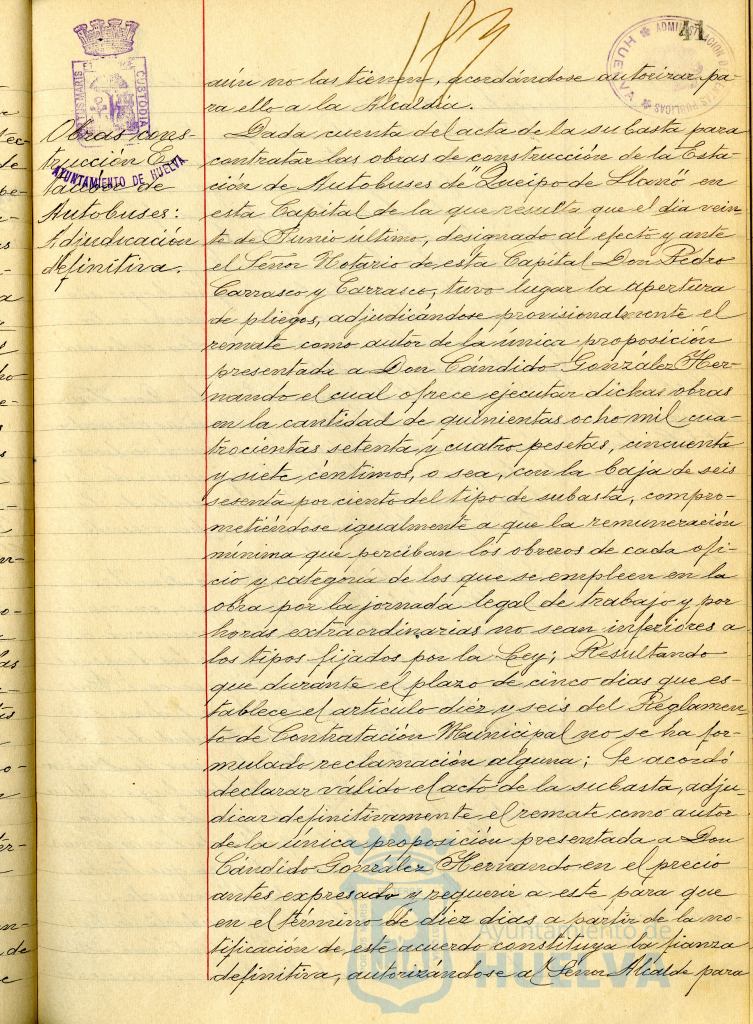 183
41
ADMINISTRACIÓN DE RENTAS PÚBLICAS
HUELVA
PORTUS MARIS
CUSTODIA
AYUNTAMIENTO DE HUELVA
Obras cons-
trucción Es-
tación de
Autobuses:
Adjudicación
definitiva.
aún no las tienen, acordándose autorizar pa-
ra ello a la Alcaldía.
Dada cuenta del acta de la subasta para
contratar las obras de construcción de la Esta-
ción de Autobuses de "Queipo de Llano" en
esta Capital de la que resulta que el día vein-
te de Junio último, designado al efecto y ante
el Señor Notario de esta Capital Don Pedro
Carrasco y Carrasco, tuvo lugar la apertura
de pliegos, adjudicándose provisionalmente el
remate como autor de la única proposición
presentada a Don Cándido González Her-
nando el cual ofrece ejecutar dichas obras
en la cantidad de quinientas ocho mil cua-
trocientas setenta y cuatro pesetas, cincuenta
y siete céntimos, o sea, con la baja de seis
sesenta por ciento del tipo de subasta, compro-
metiéndose igualmente a que la remuneración
mínima que perciban los obreros de cada ofi-
cio y categoría de los que se empleen en la
obra por la jornada legal de trabajo y por
horas extraordinarias no sean inferiores a
los tipos fijados por la Ley; Resultando
que durante el plazo de cinco días que es-
tablece el artículo diez y seis del Reglamen-
to de Contratación Municipal no se ha for-
mulado reclamación alguna; Se acordó
declarar válido el acto de la subasta, adju-
dicar definitivamente el remate como autor
de la única proposición presentada a Don
Cándido González Hernando en el precio
antes expresado y requerir a este para que
en el término de diez días a partir de la no-
tificación de este acuerdo constituya la fianza
definitiva, autorizándose al Señor Alcalde para
Ayuntamiento de
HUELVA